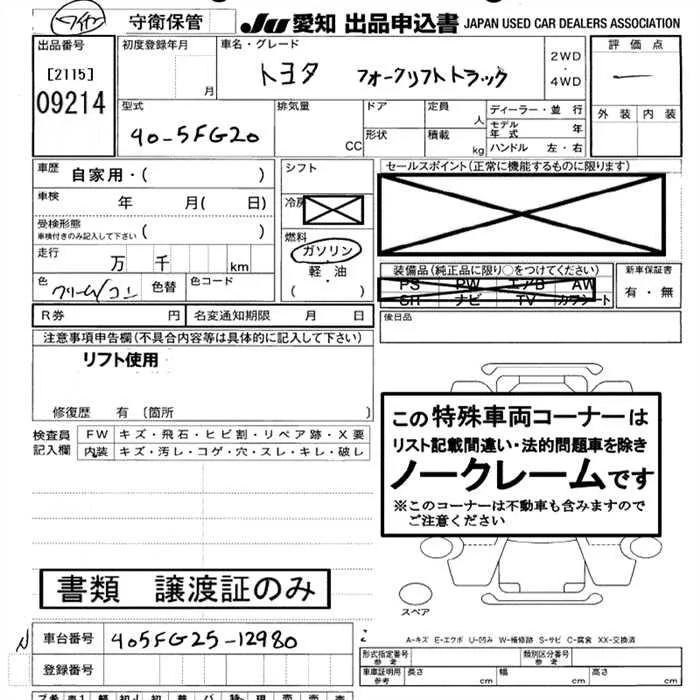 守衛保管 JU 愛知 出品申込書 JAPAN USED CAR DEALERS ASSOCIATION
出品番号 初度登録年月 車名・グレード 2WD・4WD 評価点
[2115] 月 トヨタ フォークリフトトラック ―
09214
型式 排気量 ドア 定員 人 ディーラー・並行 外装 内装
40-5FG20 CC 形状 積載 kg モデル年式 年
ハンドル 左・右
車歴 自家用・( )
シフト
セールスポイント(正常に機能するものに限ります)
車検 年 月( 日)
冷房
受検形態 ( )
車検付きのみ記入して下さい
燃料
ガソリン
軽・油
( )
走行 万 千 km
色 クリーム/コン 色替 色コード
装備品(純品に限り○をつけてください) 新車保証書
PS PW エアB AW 有・無
SR ナビ TV カワシート
R券 円 名変通知期限 月 日
後日品
注意事項申告欄(不具合内容等は具体的に記入して下さい)
リフト使用
修復歴 有 〔箇所 〕
検査員 FW キズ・飛石・ヒビ割・リペア跡・X要
記入欄 内装 キズ・汚レ・コゲ・穴・スレ・キレ・破レ
この特殊車両コーナーは
リスト記載間違い・法的問題車を除き
ノークレームです
※このコーナーは不動車も含みますので
ご注意ください
書類 譲渡証のみ
スペア
N 車台番号 405FG25-12980
A-キズ E-エクボ U-凹み W-補修跡 S-サビ C-腐食 XX-交換済
登録番号
形式指定番号 参考 類別区分番号 参考
車庫証明用 参考 長さ cm 幅 cm 高さ cm